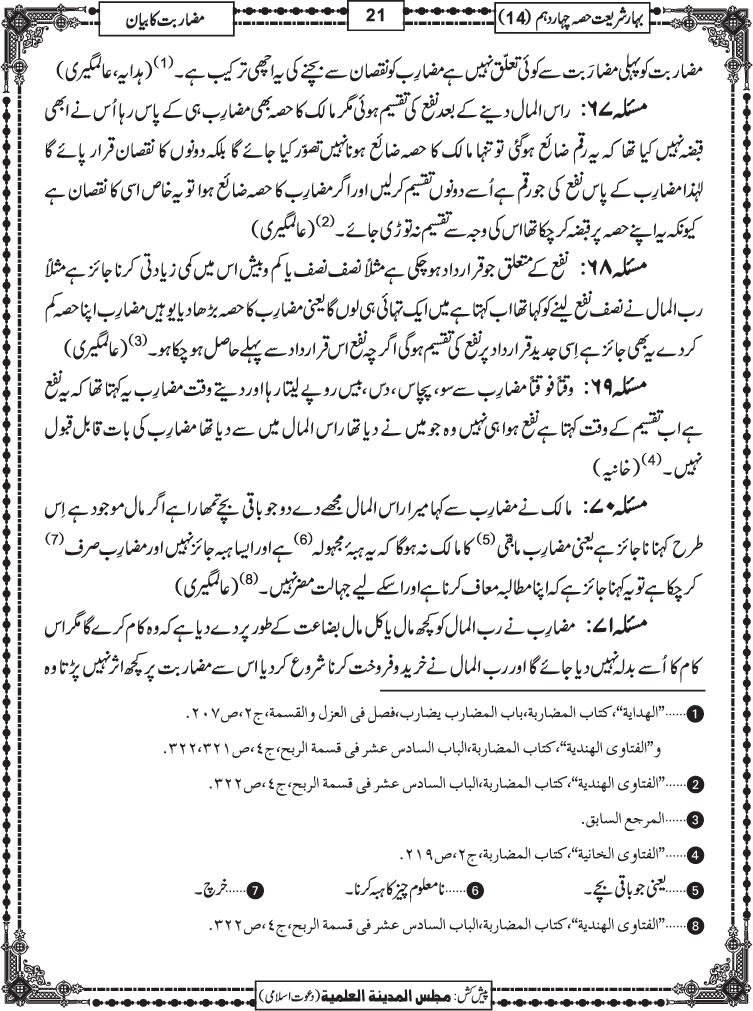 بہارِشریعت حصہ چہاردہم (14)
21
مضاربت کا بیان
مضاربت کو پہلی مضارَبت سے کوئی تعلّق نہیں ہے مضارِب کو نقصان سے بچنے کی یہ اچھی ترکیب ہے۔(1) (ہدایہ، عالمگیری)
مسئلہ ۶۷: راس المال دینے کے بعد نفع کی تقسیم ہوئی مگر مالک کا حصہ بھی مضارِب ہی کے پاس رہا اُس نے ابھی
قبضہ نہیں کیا تھا کہ یہ رقم ضائع ہوگئی تو تنہا مالک کا حصہ ضائع ہونا نہیں تصوّر کیا جائے گا بلکہ دونوں کا نقصان قرار پائے گا
لہٰذا مضارِب کے پاس نفع کی جو رقم ہے اُسے دونوں تقسیم کرلیں اور اگر مضارِب کا حصہ ضائع ہوا تو یہ خاص اسی کا نقصان ہے
کیونکہ یہ اپنے حصہ پر قبضہ کرچکا تھا اس کی وجہ سے تقسیم نہ توڑی جائے۔(2) (عالمگیری)
مسئلہ ۶۸: نفع کے متعلق جو قرارداد ہوچکی ہے مثلاً نصف نصف یا کم و بیش اس میں کمی زیادتی کرنا جائز ہے مثلاً
رب المال نے نصف نفع لینے کو کہا تھا اب کہتا ہے میں ایک تہائی ہی لوں گا یعنی مضارِب کا حصہ بڑھا دیا یوہیں مضارِب اپنا حصہ کم
کردے یہ بھی جائز ہے اِسی جدید قرارداد پر نفع کی تقسیم ہوگی اگرچہ نفع اس قرارداد سے پہلے حاصل ہوچکا ہو۔(3) (عالمگیری)
مسئلہ ۶۹: وقتاً فوقتاً مضارِب سے سو، پچاس، دس، بیس روپے لیتا رہا اور دیتے وقت مضارِب یہ کہتا تھا کہ یہ نفع
ہے اب تقسیم کے وقت کہتا ہے نفع ہوا ہی نہیں وہ جو میں نے دیا تھا راس المال میں سے دیا تھا مضارِب کی بات قابل قبول
نہیں۔(4) (خانیہ)
مسئلہ ۷۰: مالک نے مضارِب سے کہا میرا راس المال مجھے دے دو جو باقی بچے تمھارا ہے اگر مال موجود ہے اِس
طرح کہنا ناجائز ہے یعنی مضارِب مابقی(5) کا مالک نہ ہوگا کہ یہ ہبۂ مجہولہ(6) ہے اور ایسا ہبہ جائز نہیں اور مضارِب صرف(7)
کرچکا ہے تو یہ کہنا جائز ہے کہ اپنا مطالبہ معاف کرنا ہے اور اسکے لیے جہالت مضر نہیں۔(8) (عالمگیری)
مسئلہ ۷۱: مضارِب نے رب المال کو کچھ مال یا کل مال بضاعت کے طور پر دے دیا ہے کہ وہ کام کرے گا مگر اس
کام کا اُسے بدلہ نہیں دیا جائے گا اور رب المال نے خرید و فروخت کرنا شروع کردیا اس سے مضاربت پر کچھ اثر نہیں پڑتا وہ
1......"الھدایة"، کتاب المضاربة،باب المضارب یضارب،فصل فی العزل والقسمة،ج۲،ص۲۰۷.
و"الفتاوی الھندیة"، کتاب المضاربة،الباب السادس عشر فی قسمة الربح،ج٤،ص۳۲۱،۳۲۲.
2......"الفتاوی الھندیة"، کتاب المضاربة،الباب السادس عشر فی قسمة الربح،ج٤،ص۳۲۲.
3......المرجع السابق.
4......"الفتاوی الخانیة"، کتاب المضاربة،ج۲،ص۲۱۹.
5......یعنی جو باقی بچے۔ 6......نامعلوم چیز کا ہبہ کرنا۔ 7......خرچ۔
8......"الفتاوی الھندیة"، کتاب المضاربة،الباب السادس عشر فی قسمة الربح،ج٤،ص۳۲۲.
پیش کش: مجلس المدینة العلمیة (دعوت اسلامی)